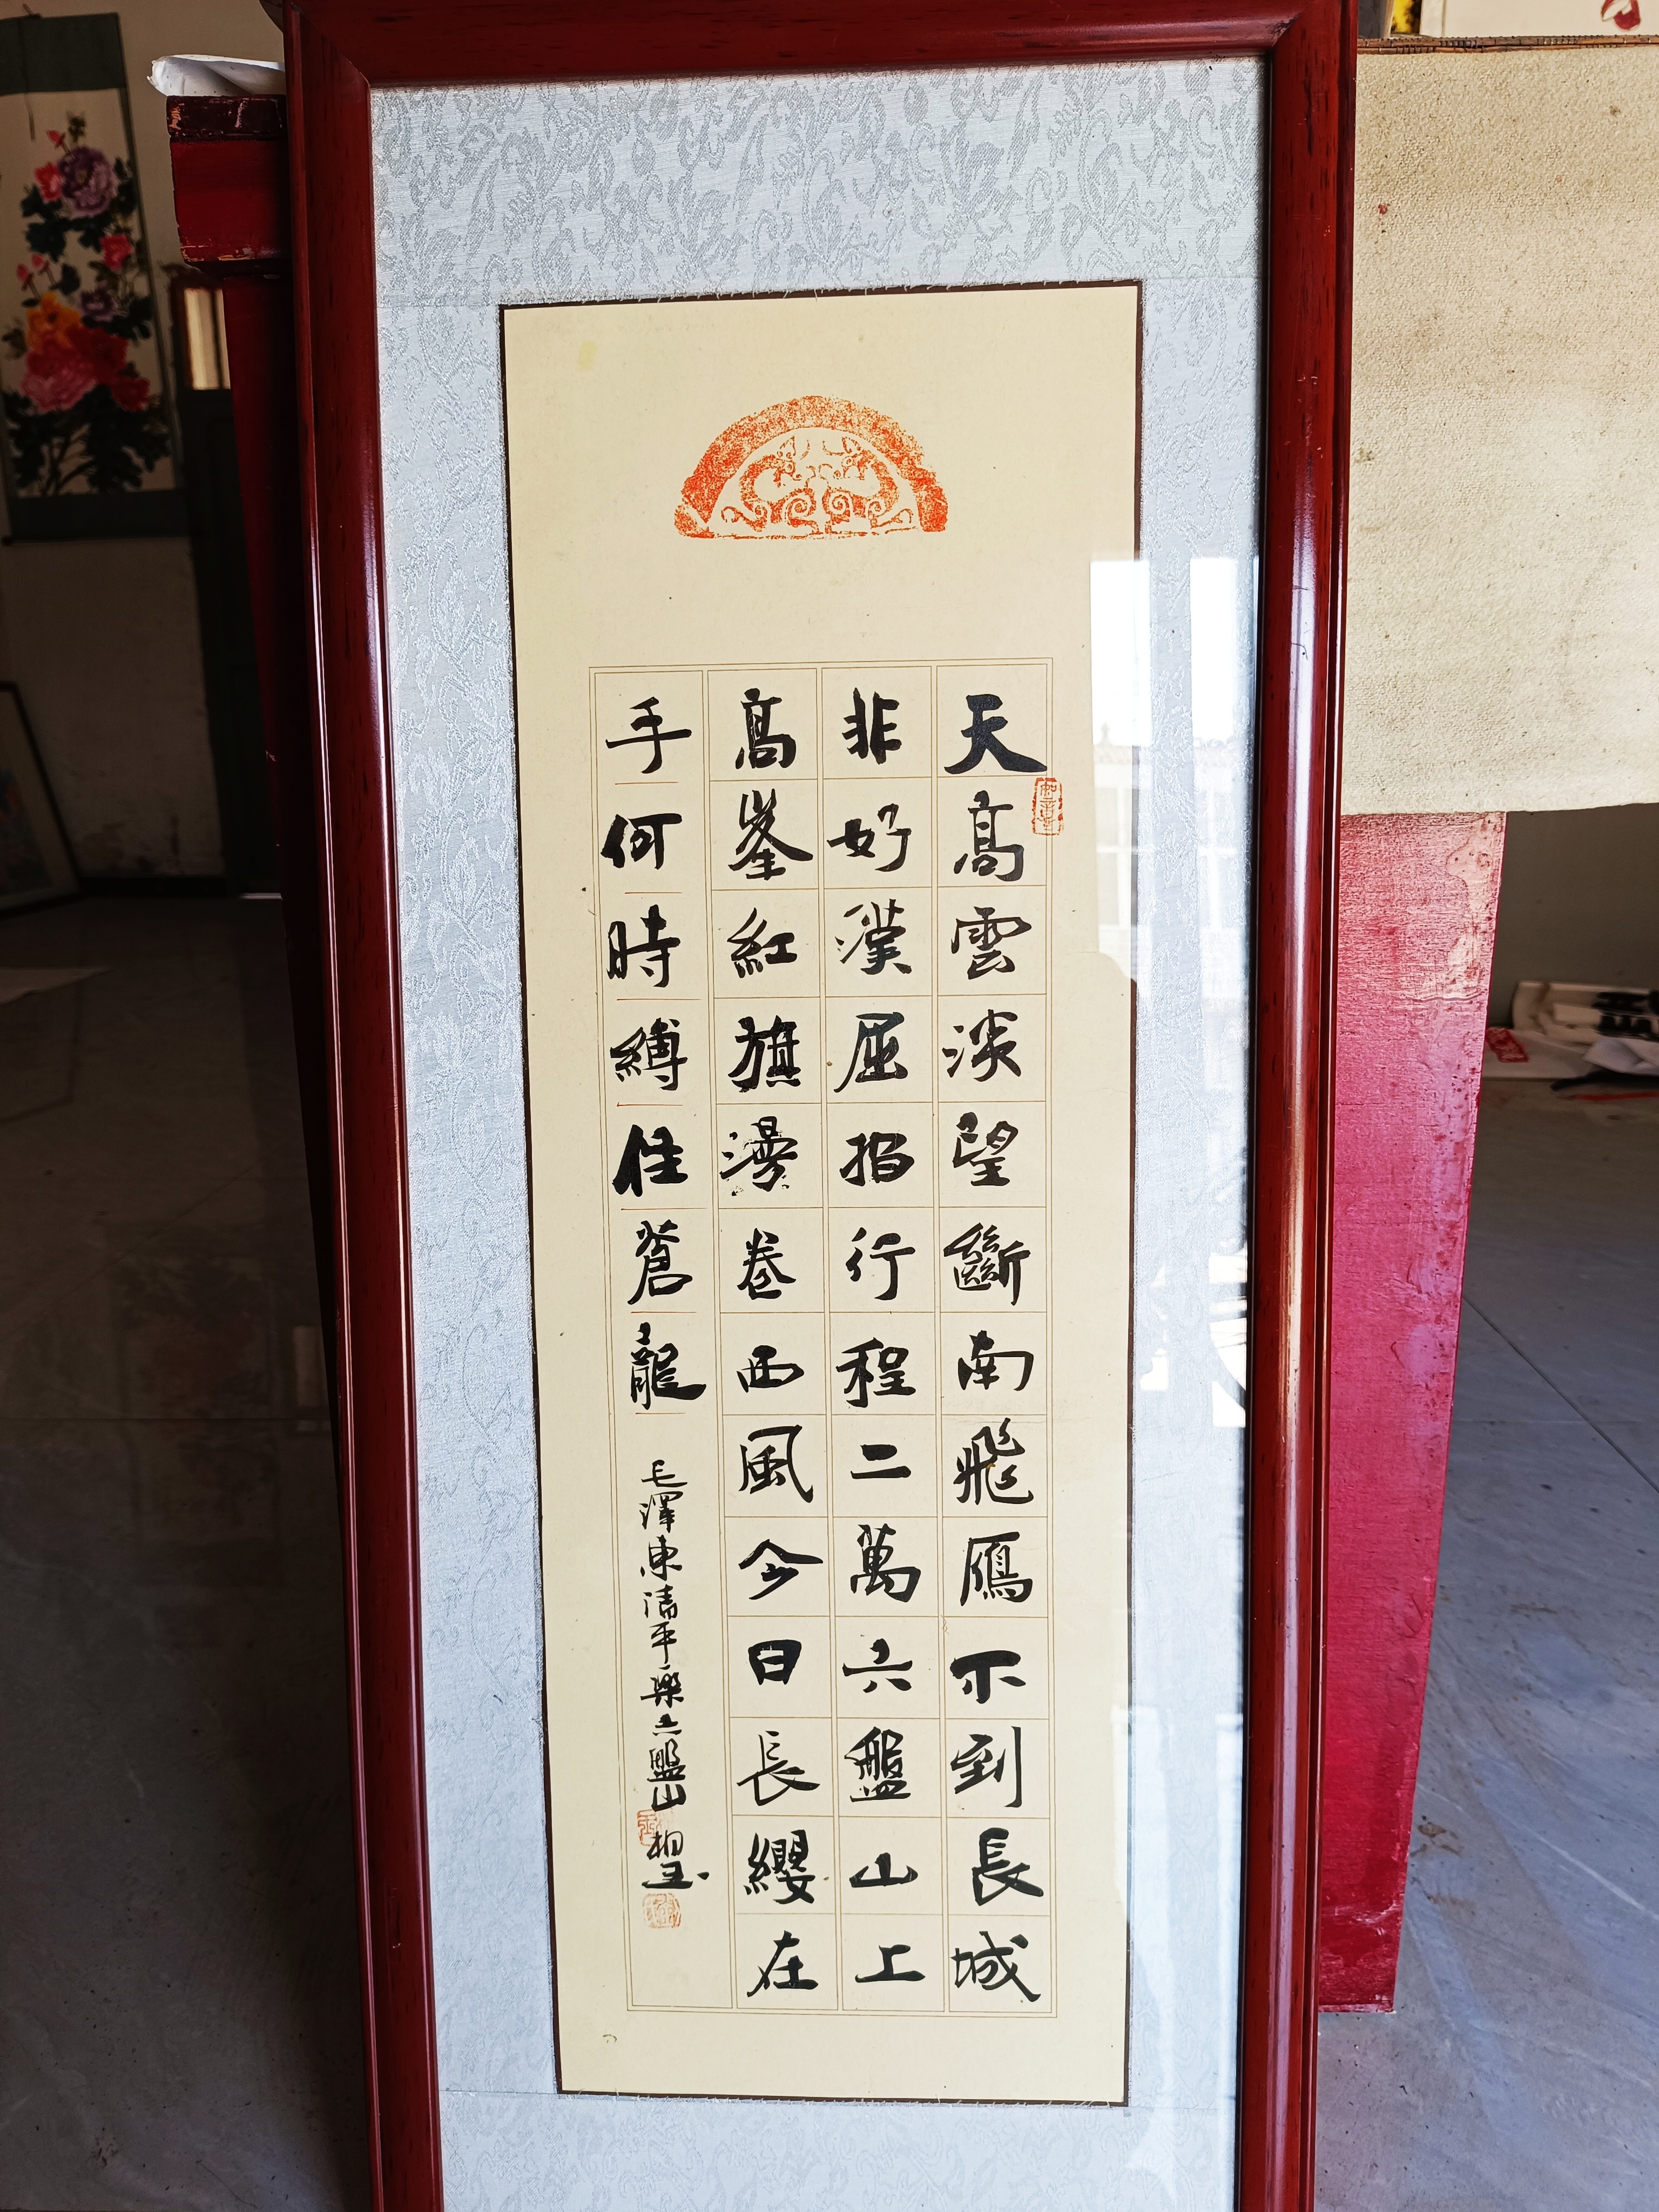 天高雲淡望斷南飛鴈不到長城
非好漢屈指行程二萬六盤山上
高峯紅旗漫卷西風今日長纓在
手何時縛住蒼龍
毛澤東清平樂六盤山
相玉